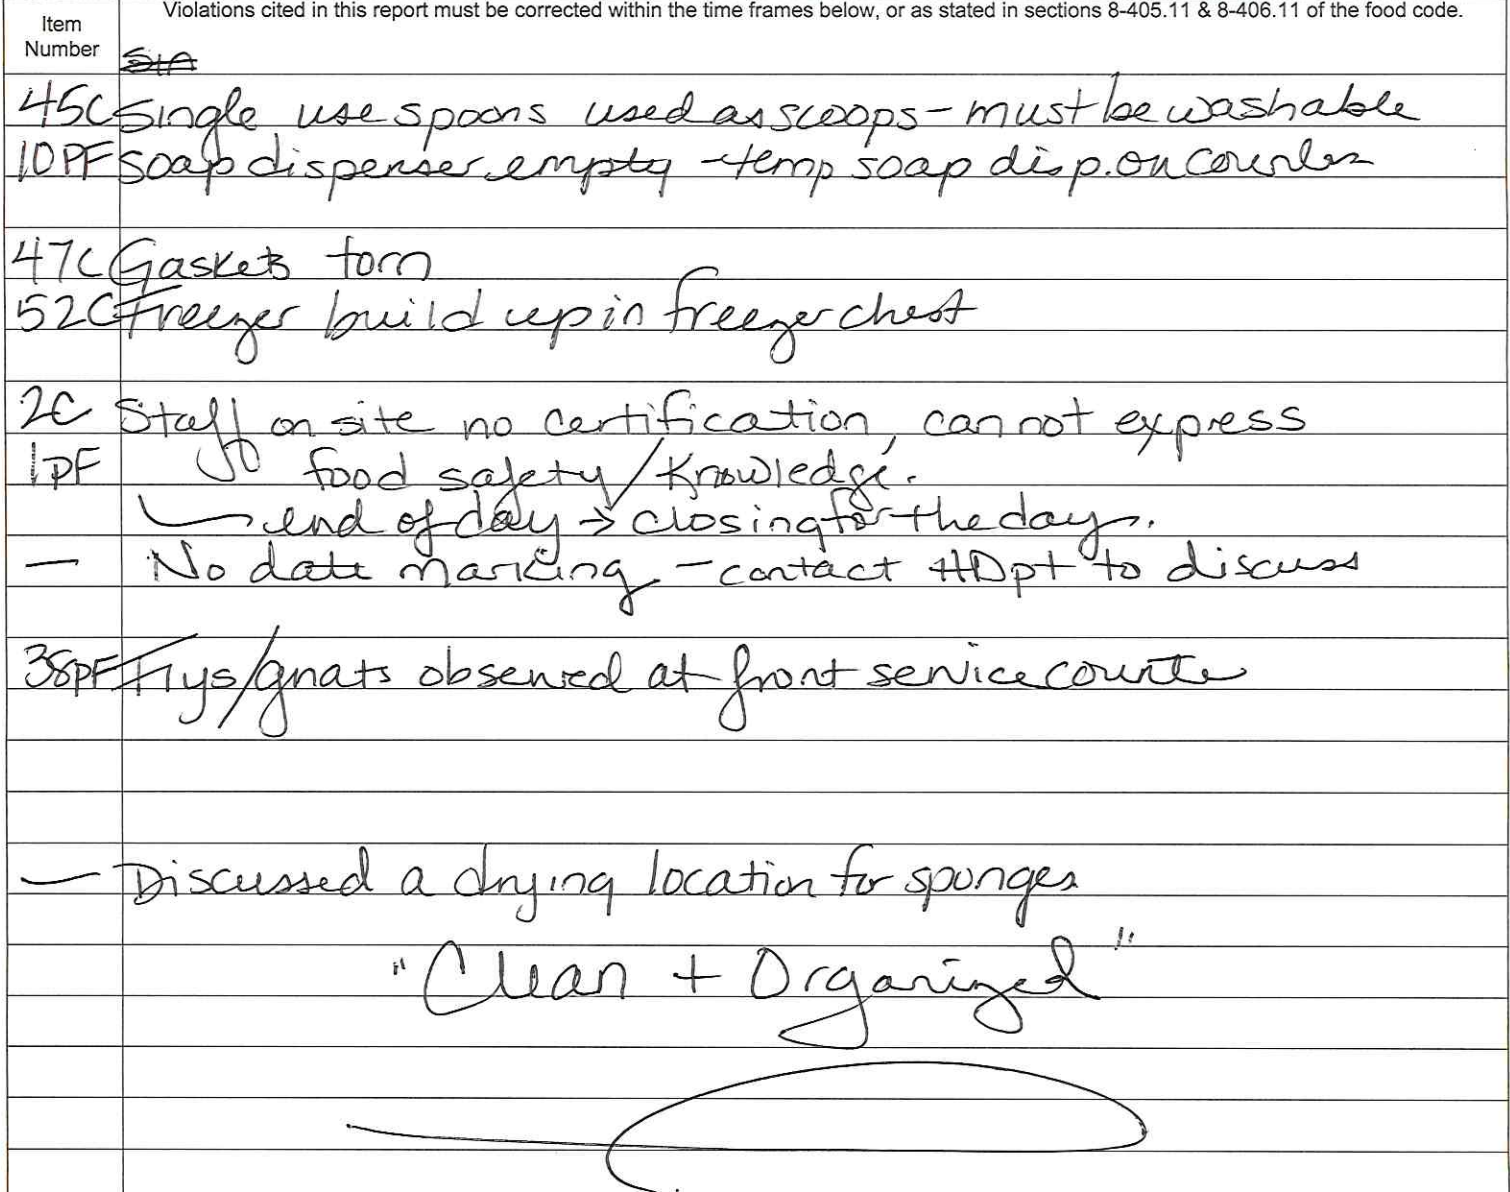 Violations cited in this report must be corrected within the time frames below, or as stated in sections 8-405.11 & 8-406.11 of the food code.
Item
Number
45C Single use spoons used as scoops - must be washable
10PF Soap dispenser empty - temp soap disp. on counter
47C Gaskets torn
52C Freezer build up in freezer chest
2C Staff on site no certification, cannot express
1PF food safety/Knowledge.
end of day → closing for the day.
— No date marking - contact HDpt to discuss
38PF Flys/gnats observed at front service counter
— Discussed a drying location for sponges
"Clean + Organized"